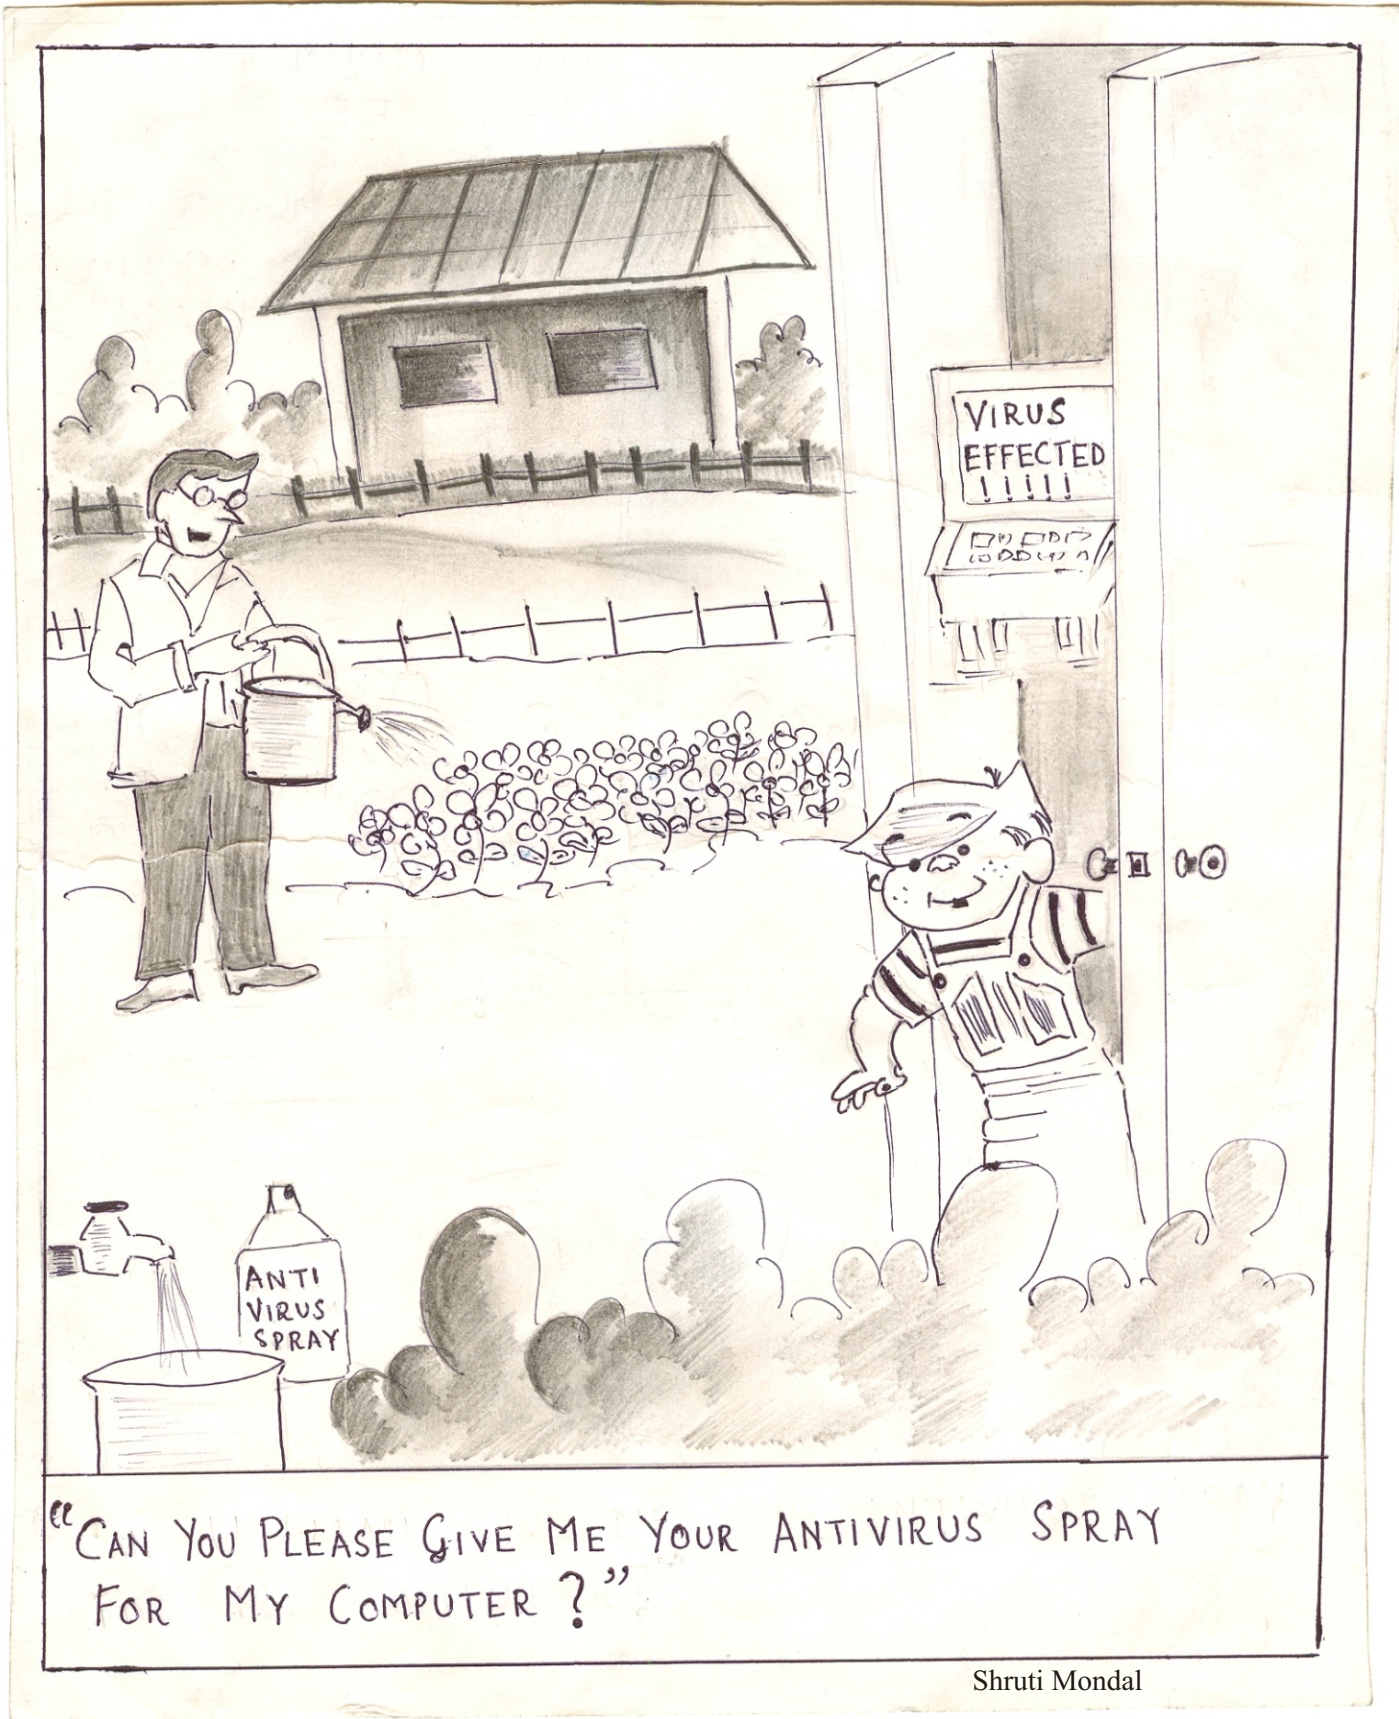 VIRUS
EFFECTED
!!!!!
ANTI
VIRUS
SPRAY
"CAN YOU PLEASE GIVE ME YOUR ANTIVIRUS SPRAY
FOR MY COMPUTER ?"
Shruti Mondal